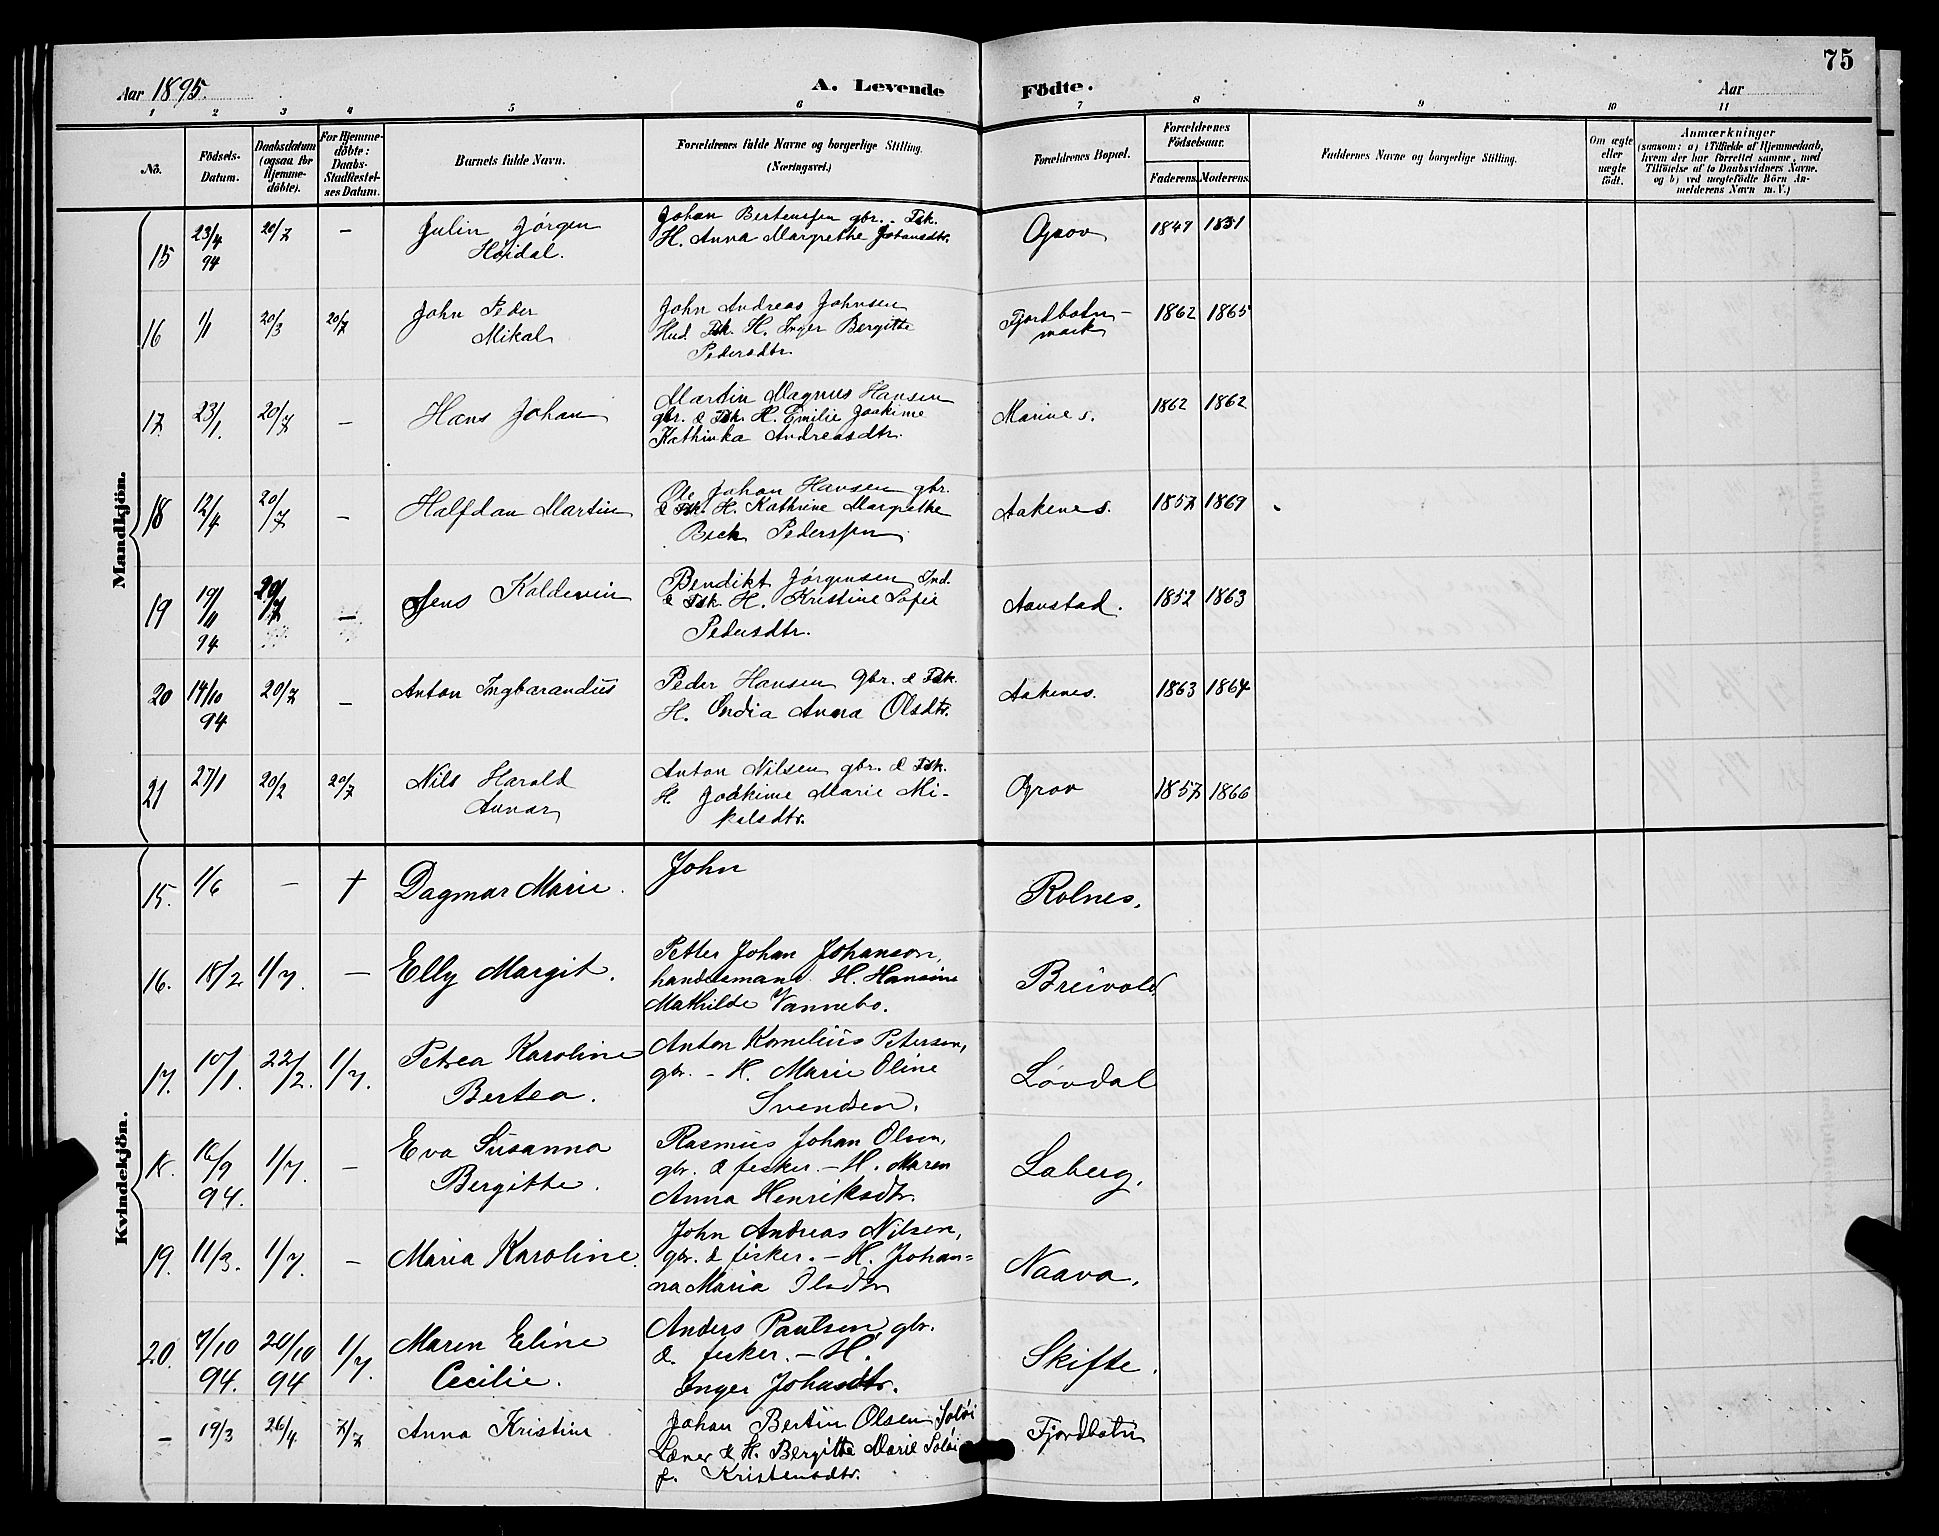 75
Aar 1895. A. Levende Födte. Aar
1 2 3 4 5 6 7 8 9 10 11
No.
Födsels-
Datum.
Daabsdatum
(ogsaa for
Hjemme-
döbte).
For Hjemme-
döbte:
Daabs-
Stadfæstel-
ses Datum.
Barnets fulde Navn.
Forældrenes fulde Navne og borgerlige Stilling.
(Næringsvei.)
Forældrenes Bopæl.
Forældrenes
Födselsaar.
Faderens. Moderens.
Faddernes Navne og borgerlige Stilling.
Om ægte
eller
uægte
födt.
Anmærkninger
(saasom: a) i Tilfælde af Hjemmedaab,
hvem der har forrettet samme, med
Tilföielse af to Daabsvidners Navne.
og b) ved uægtefödte Börn An-
melderens Navn m. V.)
Mandkjön.
15 23/4 94 20/7 – Julin Jørgen
Høidal.
Johan Bertenssen gbr. Fsk.
H. Anna Margrethe Johansdtr.
Grov 1849 1851
16 1/1 20/3 20/7 John Peder
Mikal
John Andreas Johnsen
Hud. Fsk. H. Inger Bergitte
Pedersdtr.
Fjordbotn-
mark 1862 1865
17 23/1. 20/7 – Hans Johan
Martin Magnus Hansen
gbr. & Fsk. H. Emilie Joakime
Kathinka Andreasdtr.
Marines. 1862 1862
18 12/4 20/7 – Halfdan Martin
Ole Johan Hansen gbr.
& Fsk. H. Kathrine Margrethe
Beck Pederssen
Aakenes. 1857 1869
19 19/11 94 20/7 – Jens Koldevin
Bendikt Jørgensen Ind.
& Fsk. H. Kristine Sofie
Pedersdtr.
Aanstad. 1852 1863
20 14/10 94 20/7 – Anton Ingbarandus
Peder Hansen gbr. & Fsk.
H. India Anna Olsdtr.
Aakenes. 1863 1864
21 27/1 20/2 20/7 Nils Harald
Annar
Anton Nilsen gbr. & Fsk.
H. Joakime Marie Mi-
kalsdtr.
Grov 1857 1866
Kvindekjön.
15. 1/6 – † Dagmar Marie.
John
Rolnes.
16. 18/2 1/7. – Elly Margit.
Petter Johan Johanson,
handelsmand H. Hansine
Mathilde Vannebo.
Breivold.
17. 10/1. 22/2. 1/7. Petrea Karoline
Bertea.
Anton Kornelius Peterson,
gbr. – H. Marie Oline
Svendsen.
Løvdal
18. 16/9 94. 1/7. – Eva Susanna
Bergitte.
Rasmus Johan Olsen,
gbr. & fisker. – H. Maren
Anna Henriksdtr.
Laberg.
19. 11/3. 1/7. – Maria Karoline.
John Andreas Nilsen,
gbr. & fisker. – H. Johan=
na Maria Olsdtr
Naava.
20. 7/10 94. 20/10 94 1/7. Maren Eline
Cecilie.
Anders Paulsen, gbr.
& fisker. – H.
Inger Johasdtr.
Skifte.
– 19/3 26/4 7/7 Anna Kristine
Johan Bertin Olsen Soløi
Læner & H. Bergitte Marie Soløi
f. Kristensdtr.
Fjordbotn